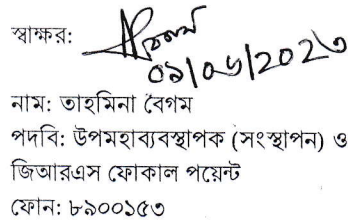 স্বাক্ষর:
০৯/০৬/২০২৩
নাম: তাহমিনা বেগম
পদবি: উপমহাব্যবস্থাপক (সংস্থাপন) ও
জিআরএস ফোকাল পয়েন্ট
ফোন: ৮৯০০১৫৩